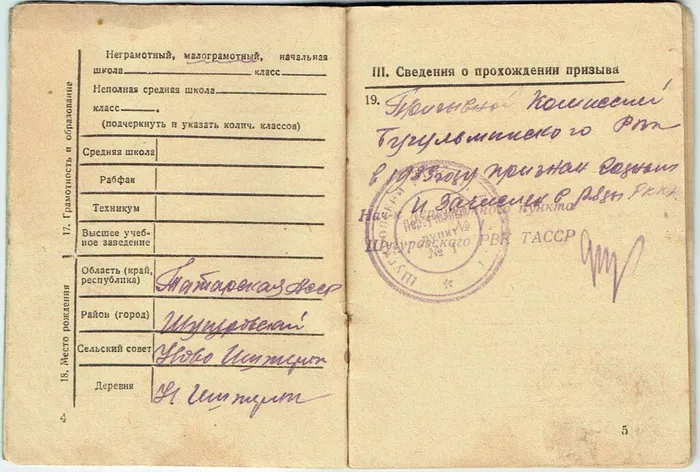 17. Грамотность и образование
Неграмотный, малограмотный, начальная
школа класс
Неполная средняя школа
класс .
(подчеркнуть и указать колич. классов)
Средняя школа
Рабфак
Техникум
Высшее учеб-
ное заведение
18. Место рождения
Область (край,
республика) Татарская АССР
Район (город) Шугуровский
Сельский совет Ново
Деревня Н
4
III. Сведения о прохождении призыва
19. Призывной Комиссией
Бугульминского Рвк
в 1939 году признан годным
и зачислен в ряды РККА
Нач-к пункта
Шугуровского РВК ТАССР
№ 1
5